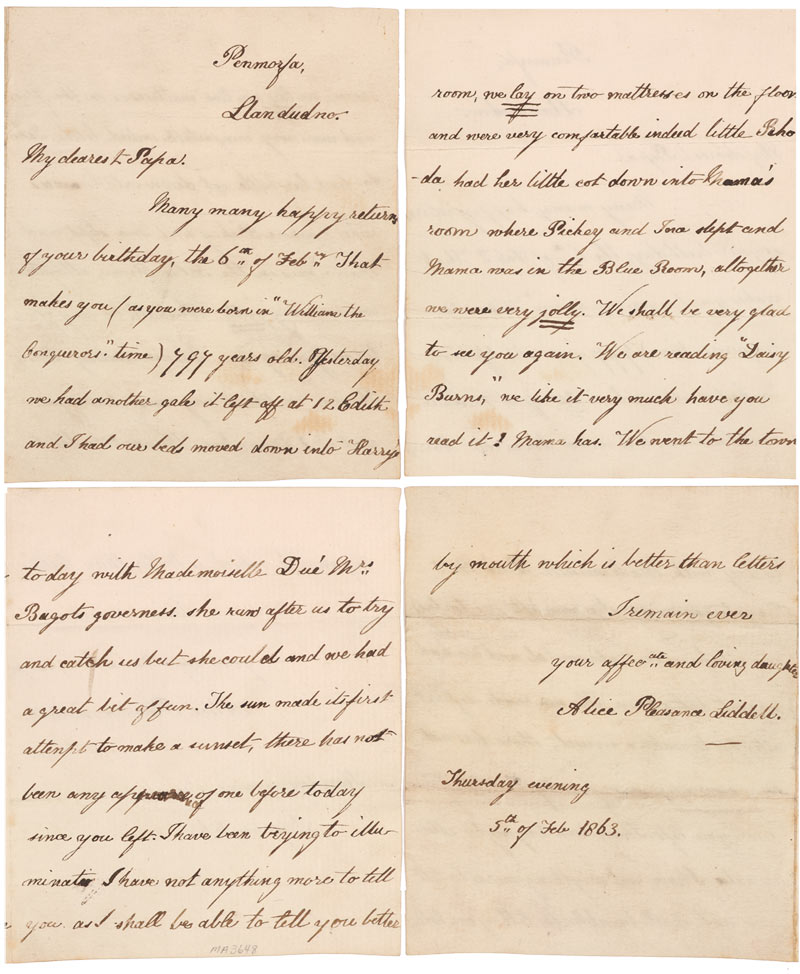 Penmorfa,
Llandudno.
My dearest Papa.
Many many happy returns
of your birthday, the 6th of Feb ry That
makes you (as you were born in "William the
Conquerors" time) 797 years old. Yesterday
we had another gale it left off at 12 Edith
and I had our beds moved down into "Harry's
room, we lay on two mattresses on the floor
and were very comfortable indeed little Rho
-da had her little cot down into Mama's
room where Pickey and Ina slept and
Mama was in the Blue Room, altogether
we were very jolly. We shall be very glad
to see you again. We are reading "Daisy
Burns," we like it very much have you
read it? Mama has. We went to the town
today with Mademoiselle Dué Mrs
Bagots governess. she runs after us to try
and catch us but she could and we had
a great bit of fun. The sun made its first
attenpt to make a sunset, there has not
been any of one before today
since you left. I have been trying to illu-
minate I have not anything more to tell
you as I shall be able to tell you better
MA3648
by mouth which is better than letters
I remain ever
your affecate and loving daughter
Alice Pleasance Liddell.
Thursday evening
5th of Feb 1863.